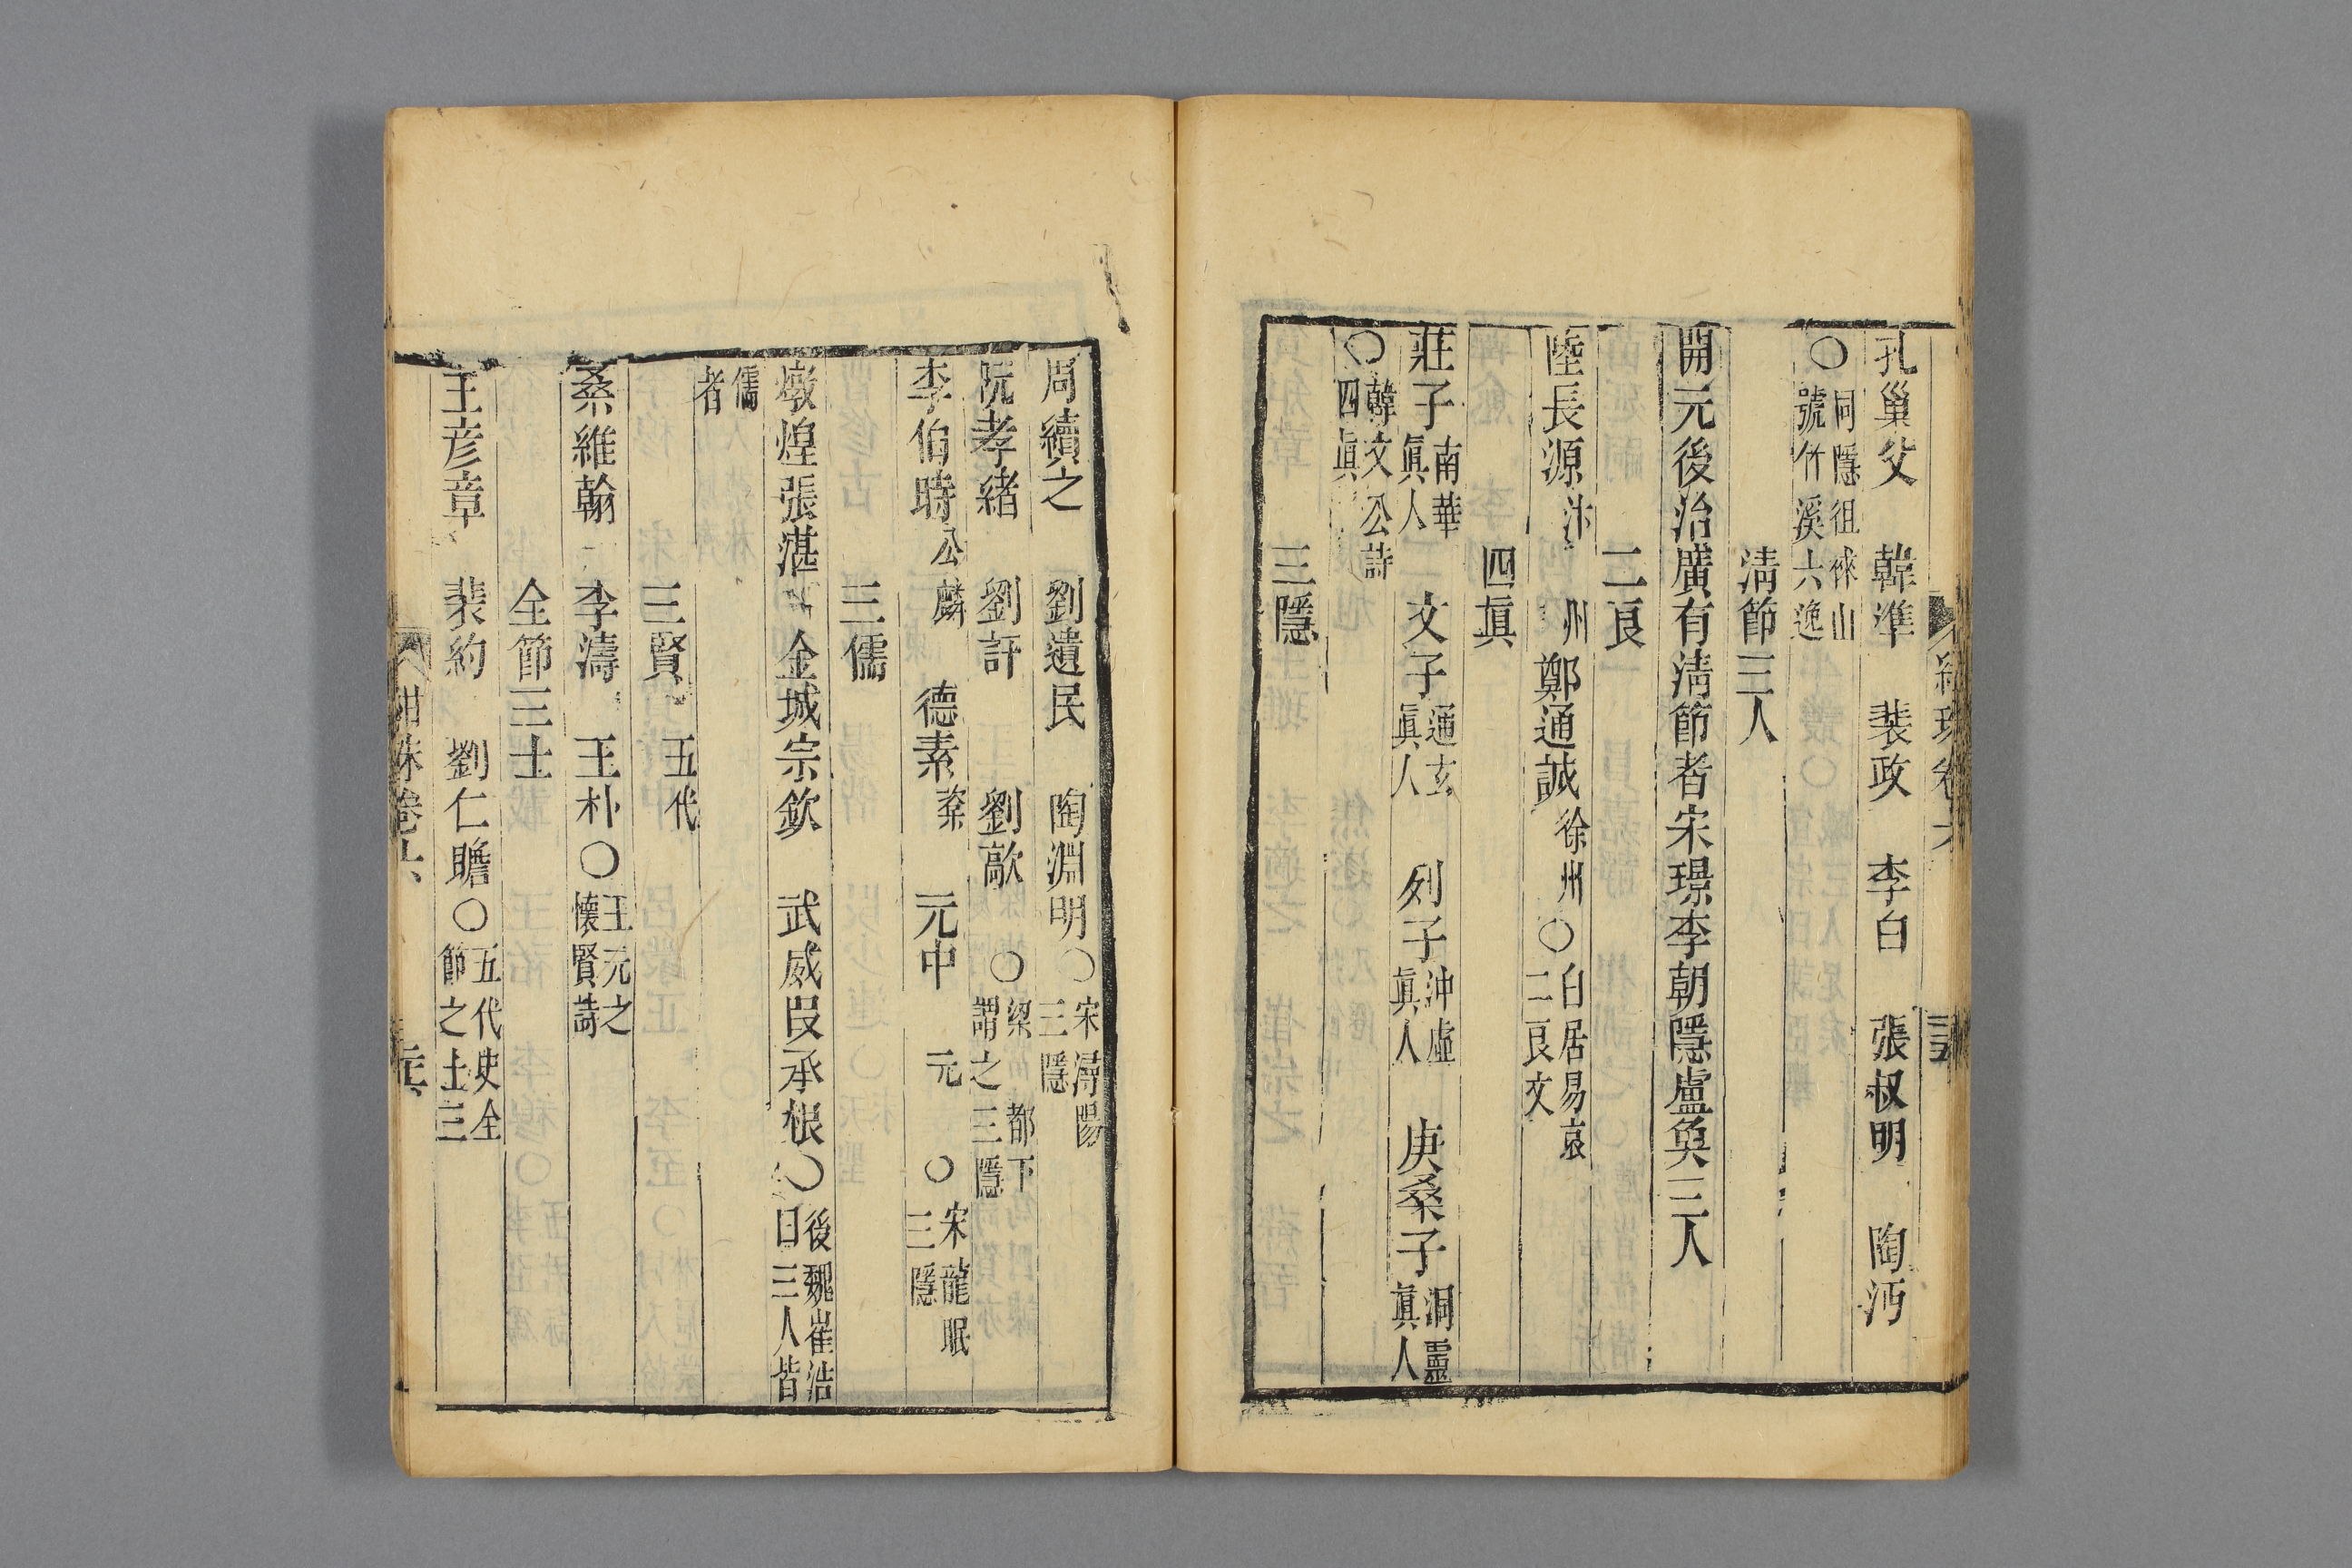 孔巢父 韓準 裴政 李白 張叔明 陶沔
〇同隱徂徠山號竹溪六逸
淸節三人
開元後治廣有淸節者宋璟李朝隱盧奐三人
二良
陸長源汴州 鄭通誠徐州〇白居易哀二良文
四眞
莊子南華眞人 文子通玄眞人 列子沖虛眞人 庚桑子洞靈眞人
〇韓文公詩四眞
三隱
周續之 劉遺民 陶淵明〇宋潯陽三隱
阮孝緒 劉訏 劉歊〇梁都下謂之三隱
李伯時公麟 德素粢 元中元〇宋龍眠三隱
三儒
燉煌張湛 金城宗欽 武威段承根〇後魏崔浩曰三人皆
儒者
三賢 五代
桑維翰 李濤 王朴〇王元之懷賢詩
全節三士
王彦章 裴約 劉仁贍〇五代史全節之士三
紺珠卷六